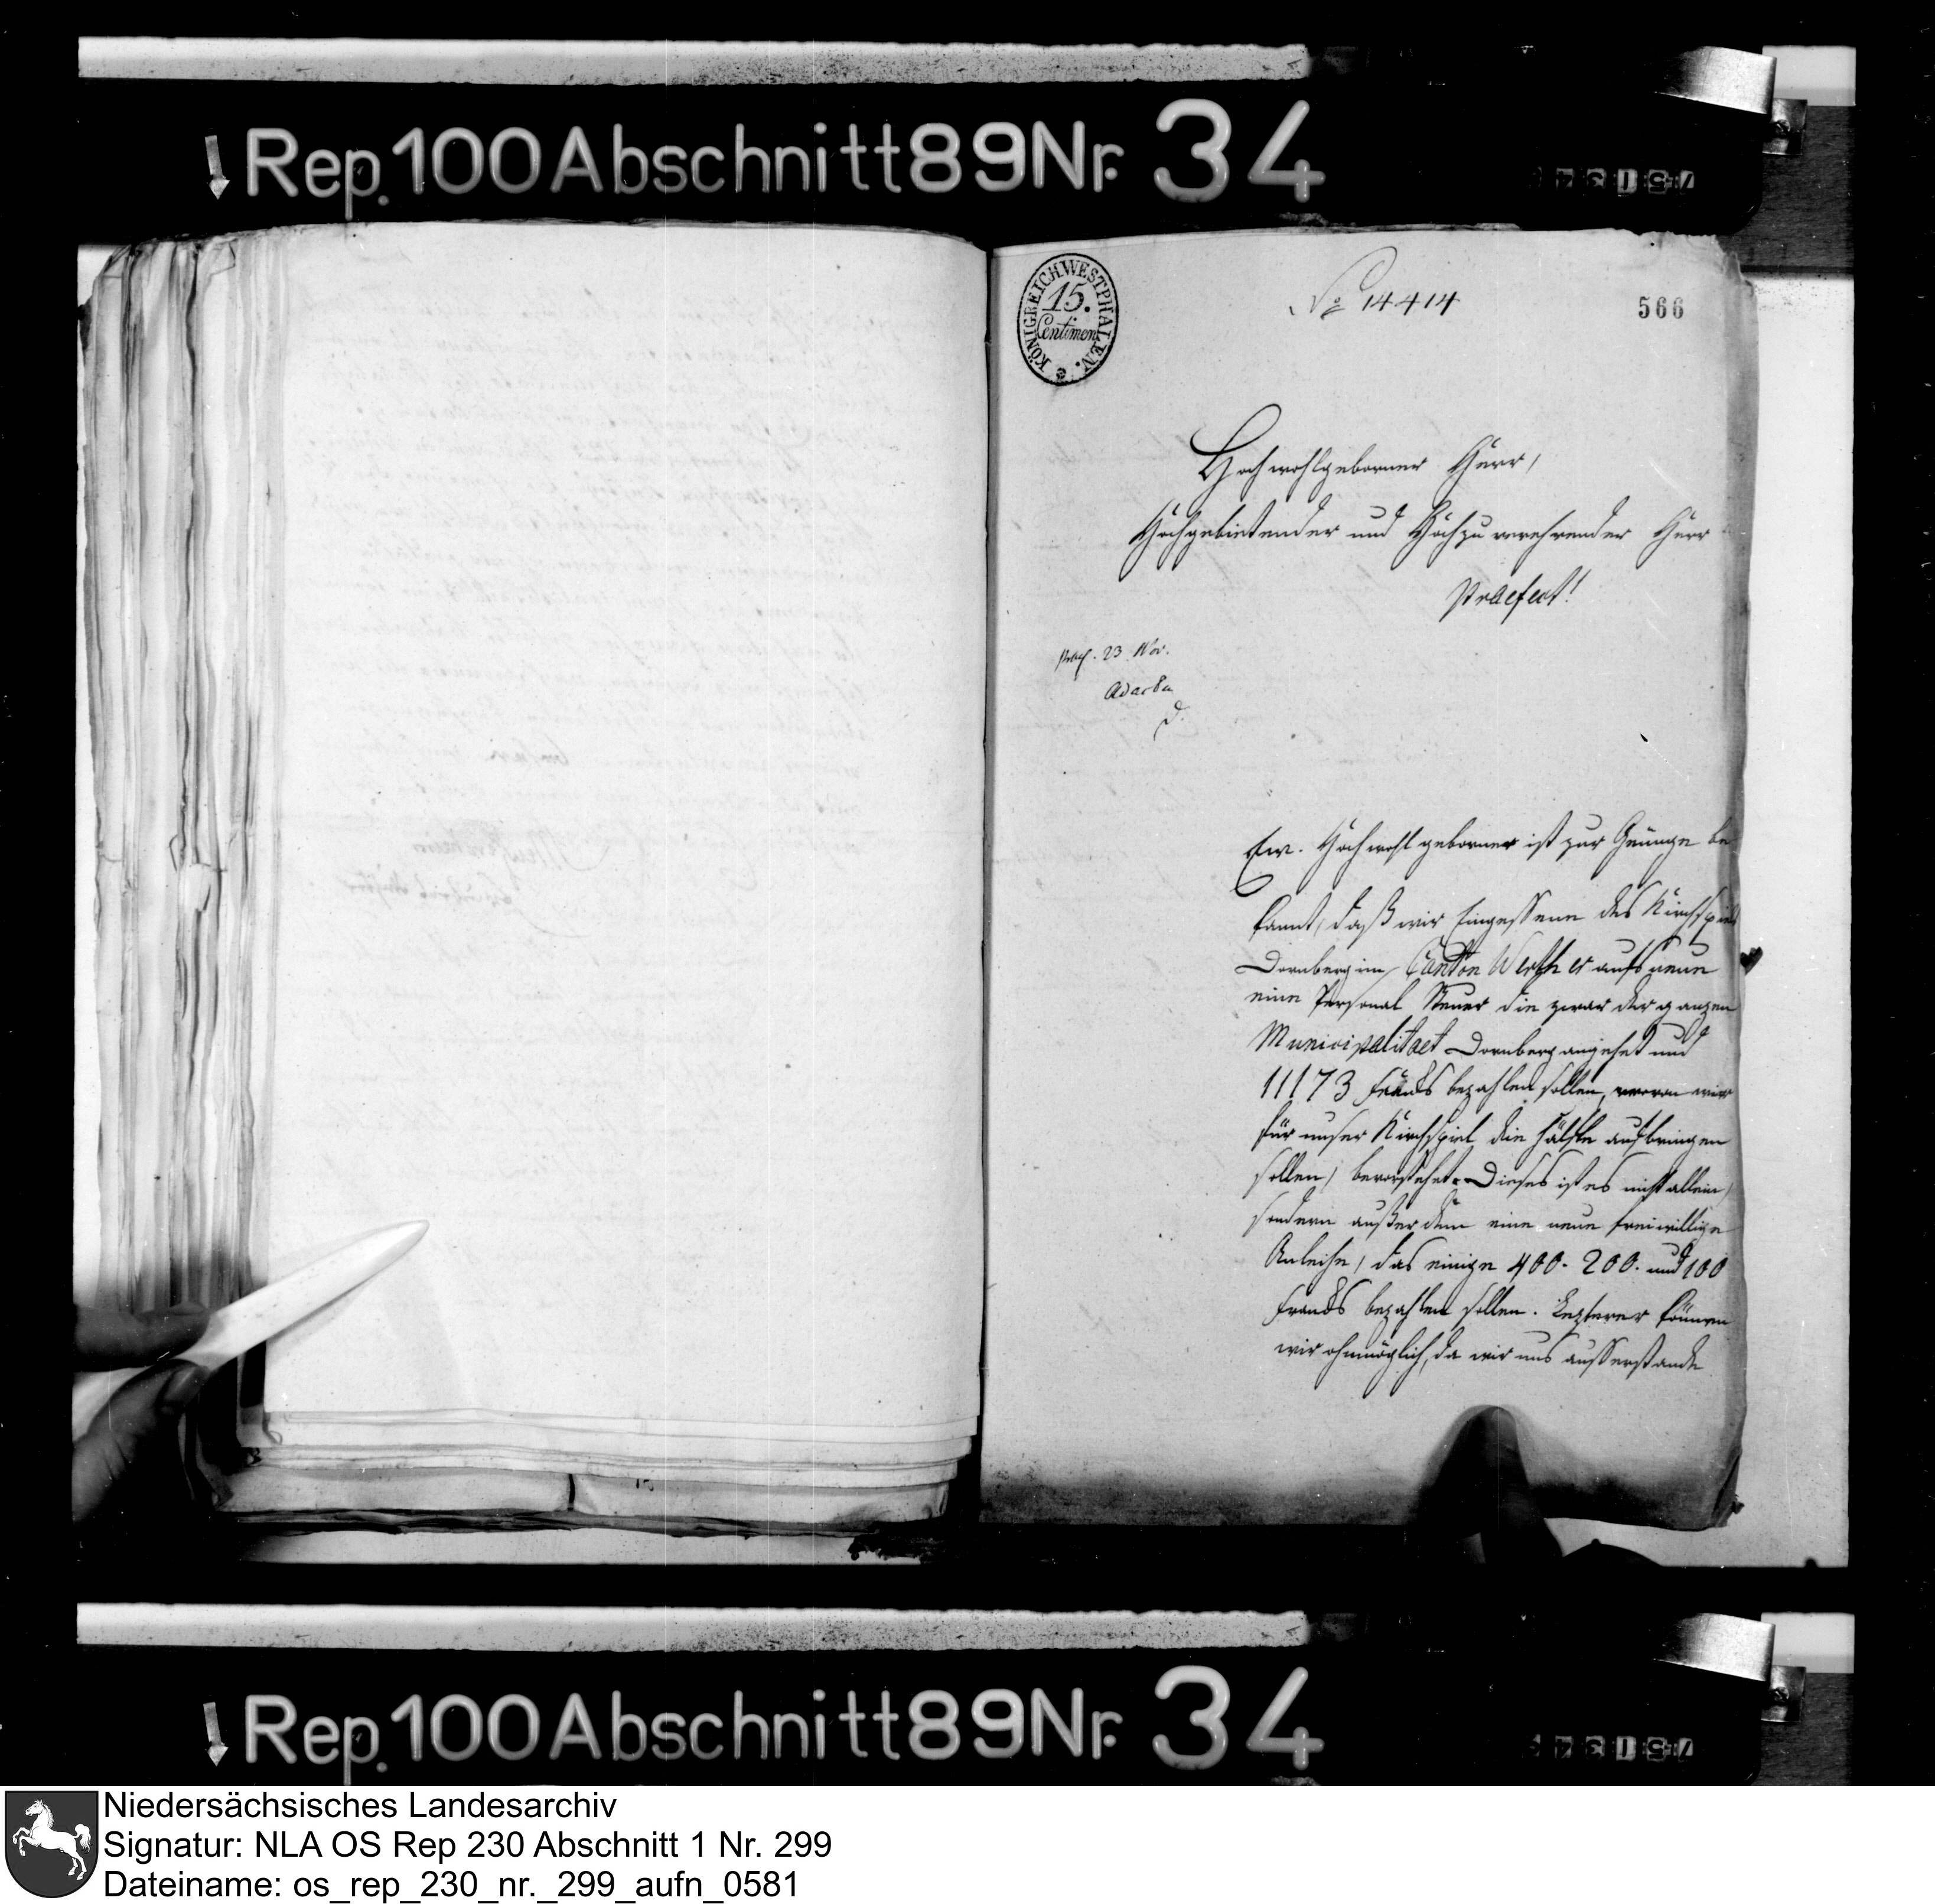 Rep. 100 Abschnitt 89 Nr. 34
KÖNIGREICH WESTPHALEN.
15.
Centimen
No 14414
566
Hochwohlgeborner Herr,
Hochgebietender und Hochzuverehrender Herr
Praefect!
23 Nov.
Ad acta
Ew. Hochwohlgeborner ist zur Genüge be
kannt, daß wir Eingessene des Kirchspiels
Dornberg im Canton Werther aufs neue
eine Personal Steuer die zwar der ganzen
Municipalitaet Dornberg angehet und
11173 Francs bezahlen sollen, wovon wir
für unser Kirchspiel die Hälfte aufbringen
sollen, bevorstehet. Dieses ist es nicht allein,
sondern außerdem eine neue freiwillige
Anleihe, das einige 400. 200. und 100
Francs bezahlen sollen. Lezterer können
wir ohnmöglich, da wir uns ausserstande
Rep. 100 Abschnitt 89 Nr. 34
Niedersächsisches Landesarchiv
Signatur: NLA OS Rep 230 Abschnitt 1 Nr. 299
Dateiname: os_rep_230_nr._299_aufn_0581